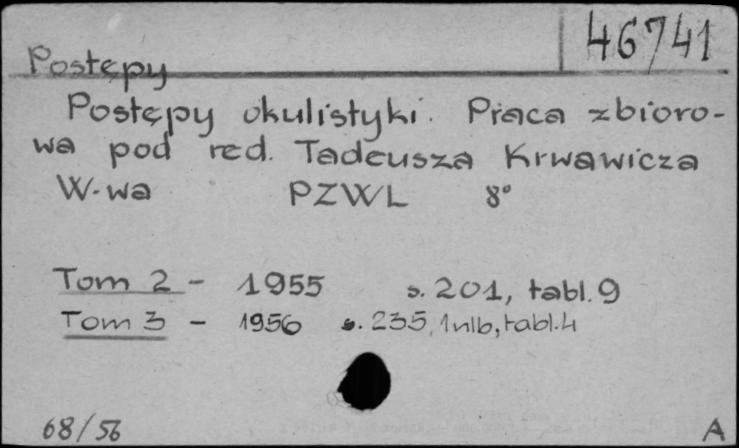 46741
Postępy
Postępy okulistyki. Praca zbioro-
wa pod red. Tadeusza Krwawicza
W-wa PZWL 8°
Tom 2 - 1955 s. 201, tabl. 9
Tom 3 - 1956 s. 235, 1 nlb, tabl. 4
68/56 A